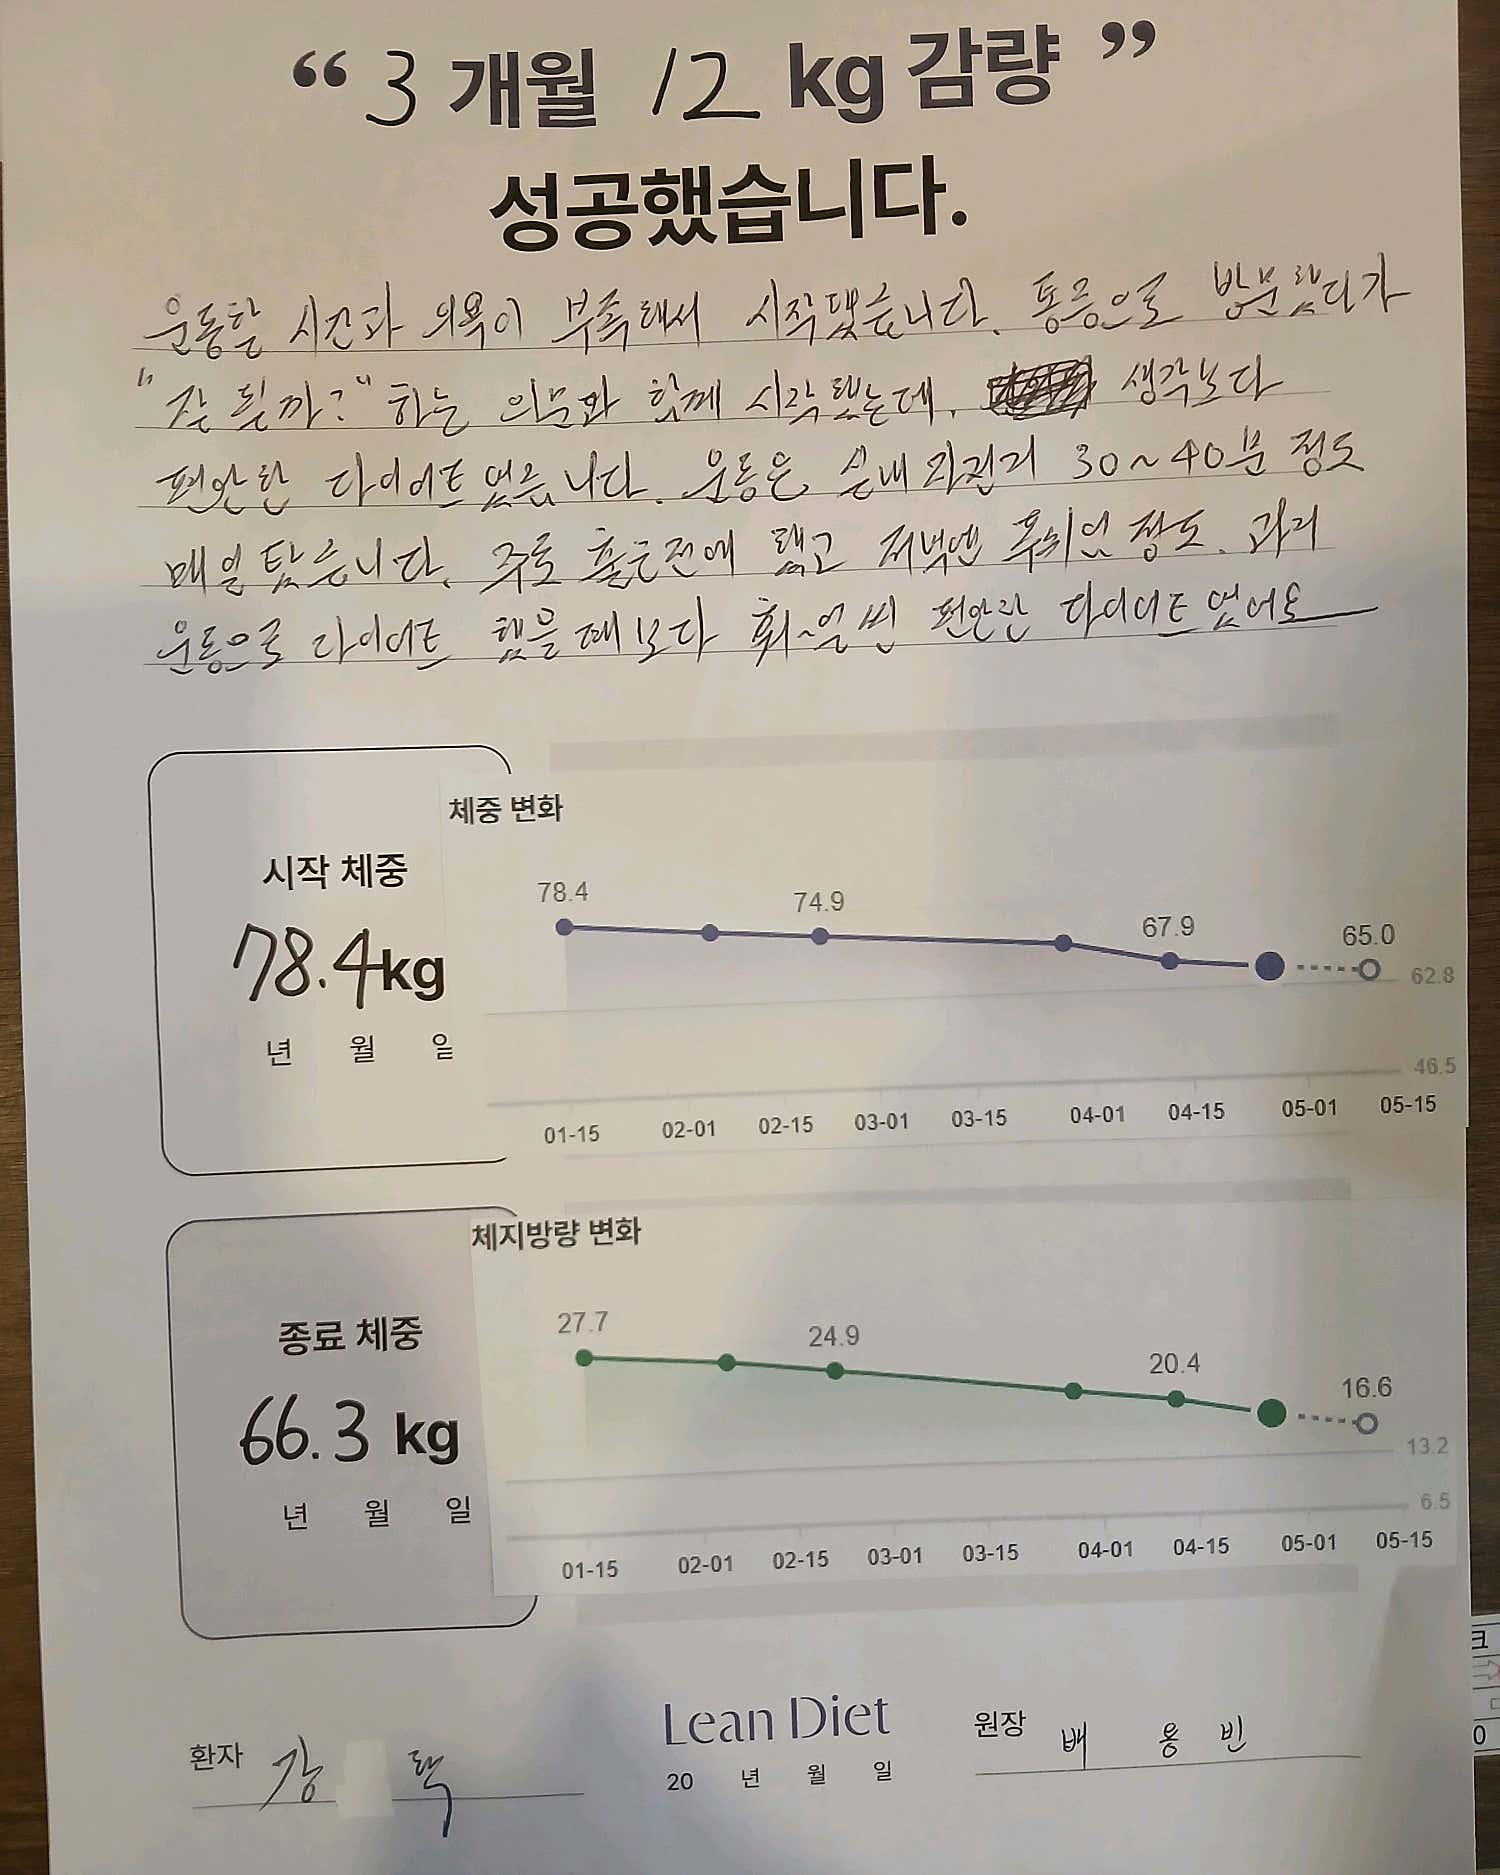 “ 3 개월 12 kg 감량 ”
성공했습니다.
운동할 시간과 의욕이 부족해서 시작했습니다. 통증으로 방문했다가
"잘 될까?" 하는 의문과 함께 시작했는데, 생각보다
편안한 다이어트였습니다. 운동은 실내자전거 30~40분 정도
매일 탔습니다. 주로 출근전에 탔고 저녁엔 휴식 정도. 과거
운동으로 다이어트 했을때보다 훨~얼씬 편안한 다이어트였어요
체중 변화
시작 체중
78.4kg
년 월 일
78.4 74.9 67.9 65.0
62.8
46.5
01-15 02-01 02-15 03-01 03-15 04-01 04-15 05-01 05-15
체지방량 변화
종료 체중
66.3 kg
년 월 일
27.7 24.9 20.4 16.6
13.2
6.5
01-15 02-01 02-15 03-01 03-15 04-01 04-15 05-01 05-15
환자 강 택
Lean Diet
20 년 월 일
원장 배 용 빈